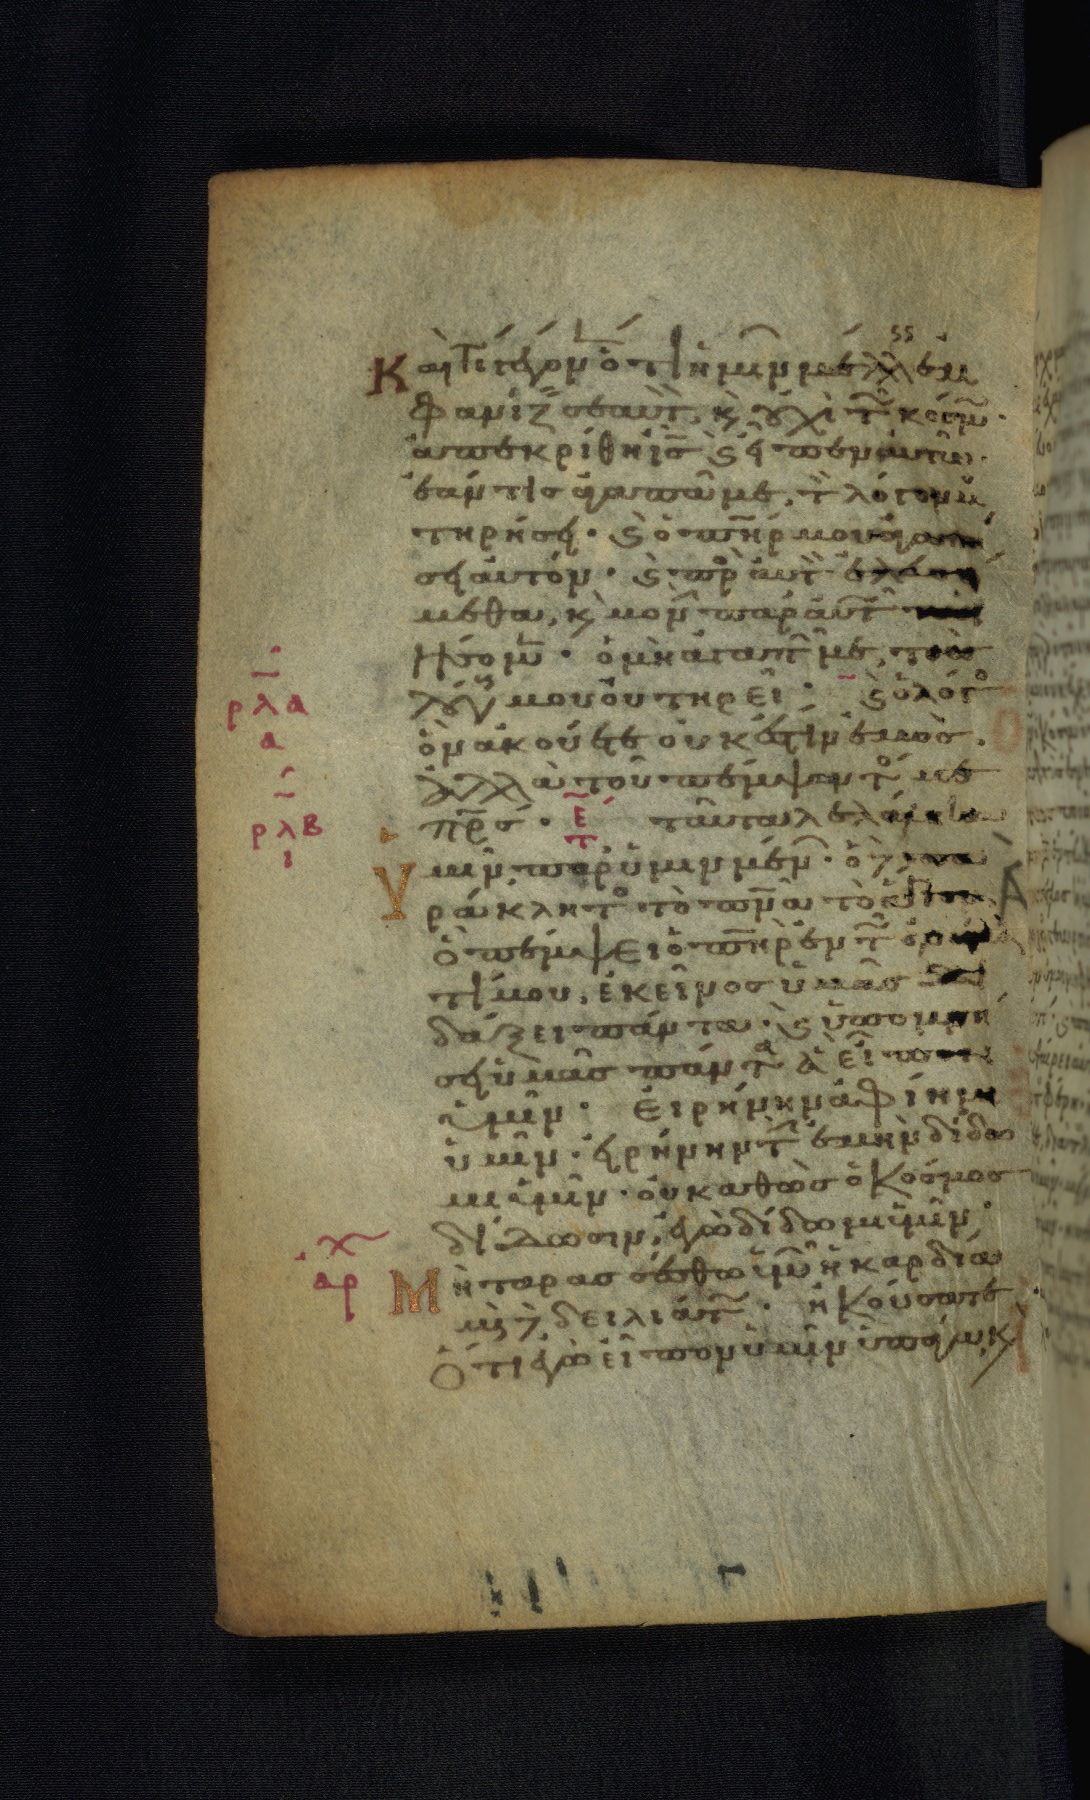 Καὶ τί γέγονεν ὅτι ἡμῖν μέλλεις ἐμ
φανίζ σεαυτ, κ οὐχὶ τ κόσμω·
ἀπεκρίθη ις ϛ εἶπεν αυτῶ·
ἐάν τισ ἀγαπᾶ με, τ λόγον μ
τηρήσει· ϛ ὁ πηρ μου ἀγαπη
σει αυτόν· ϛ πρ αυτ ἐλευσο
μεθα, κ μον παρ αυτ
ποιησομ· ὁ μὴ ἀγαπ με, τοὺσ
λόγ μου οὐ τηρεῖ· ϛ ὁ λόγο
ρλα
α
ὃν ἀκούετε οὐκ ἔστιν ἐμὸς·
ἀλλὰ τοῦ πέμψαντο με
πρσ· ταῦτα λελάληκα
ρλβ
ι
Υμῖν παρ ὑμιν μένν· ὁ δε πα
ράκλητο τὸ πνα τὸ ἅγιον
ὃ πέμψει ὁ πηρ ἐν τ ὀνόμα
τί μου, ἐκεῖνος ὑμᾶς δι
δάξει πάντα· ϛ ὑπομνή
σει ὑμᾶσ πάντα ἃ εἶπον
ὑμῖν· Εἰρήνην ἀφίημι
ὑμῖν· εἰρήνην τ ἐμὴν δίδω
μι ὑμῖν· οὐ καθὼσ ὁ κόσμοσ
δίδωσιν, ἐγὼ δίδωμι ὑμῖν·
αρχ
Μὴ ταρασσέσθω ὑμῶν ἡ καρδία
μηδὲ δειλιάτω· ἠκούσατε
Ὅτι ἐγὼ εἶπον ὑμῖν ὑπάγω, κ